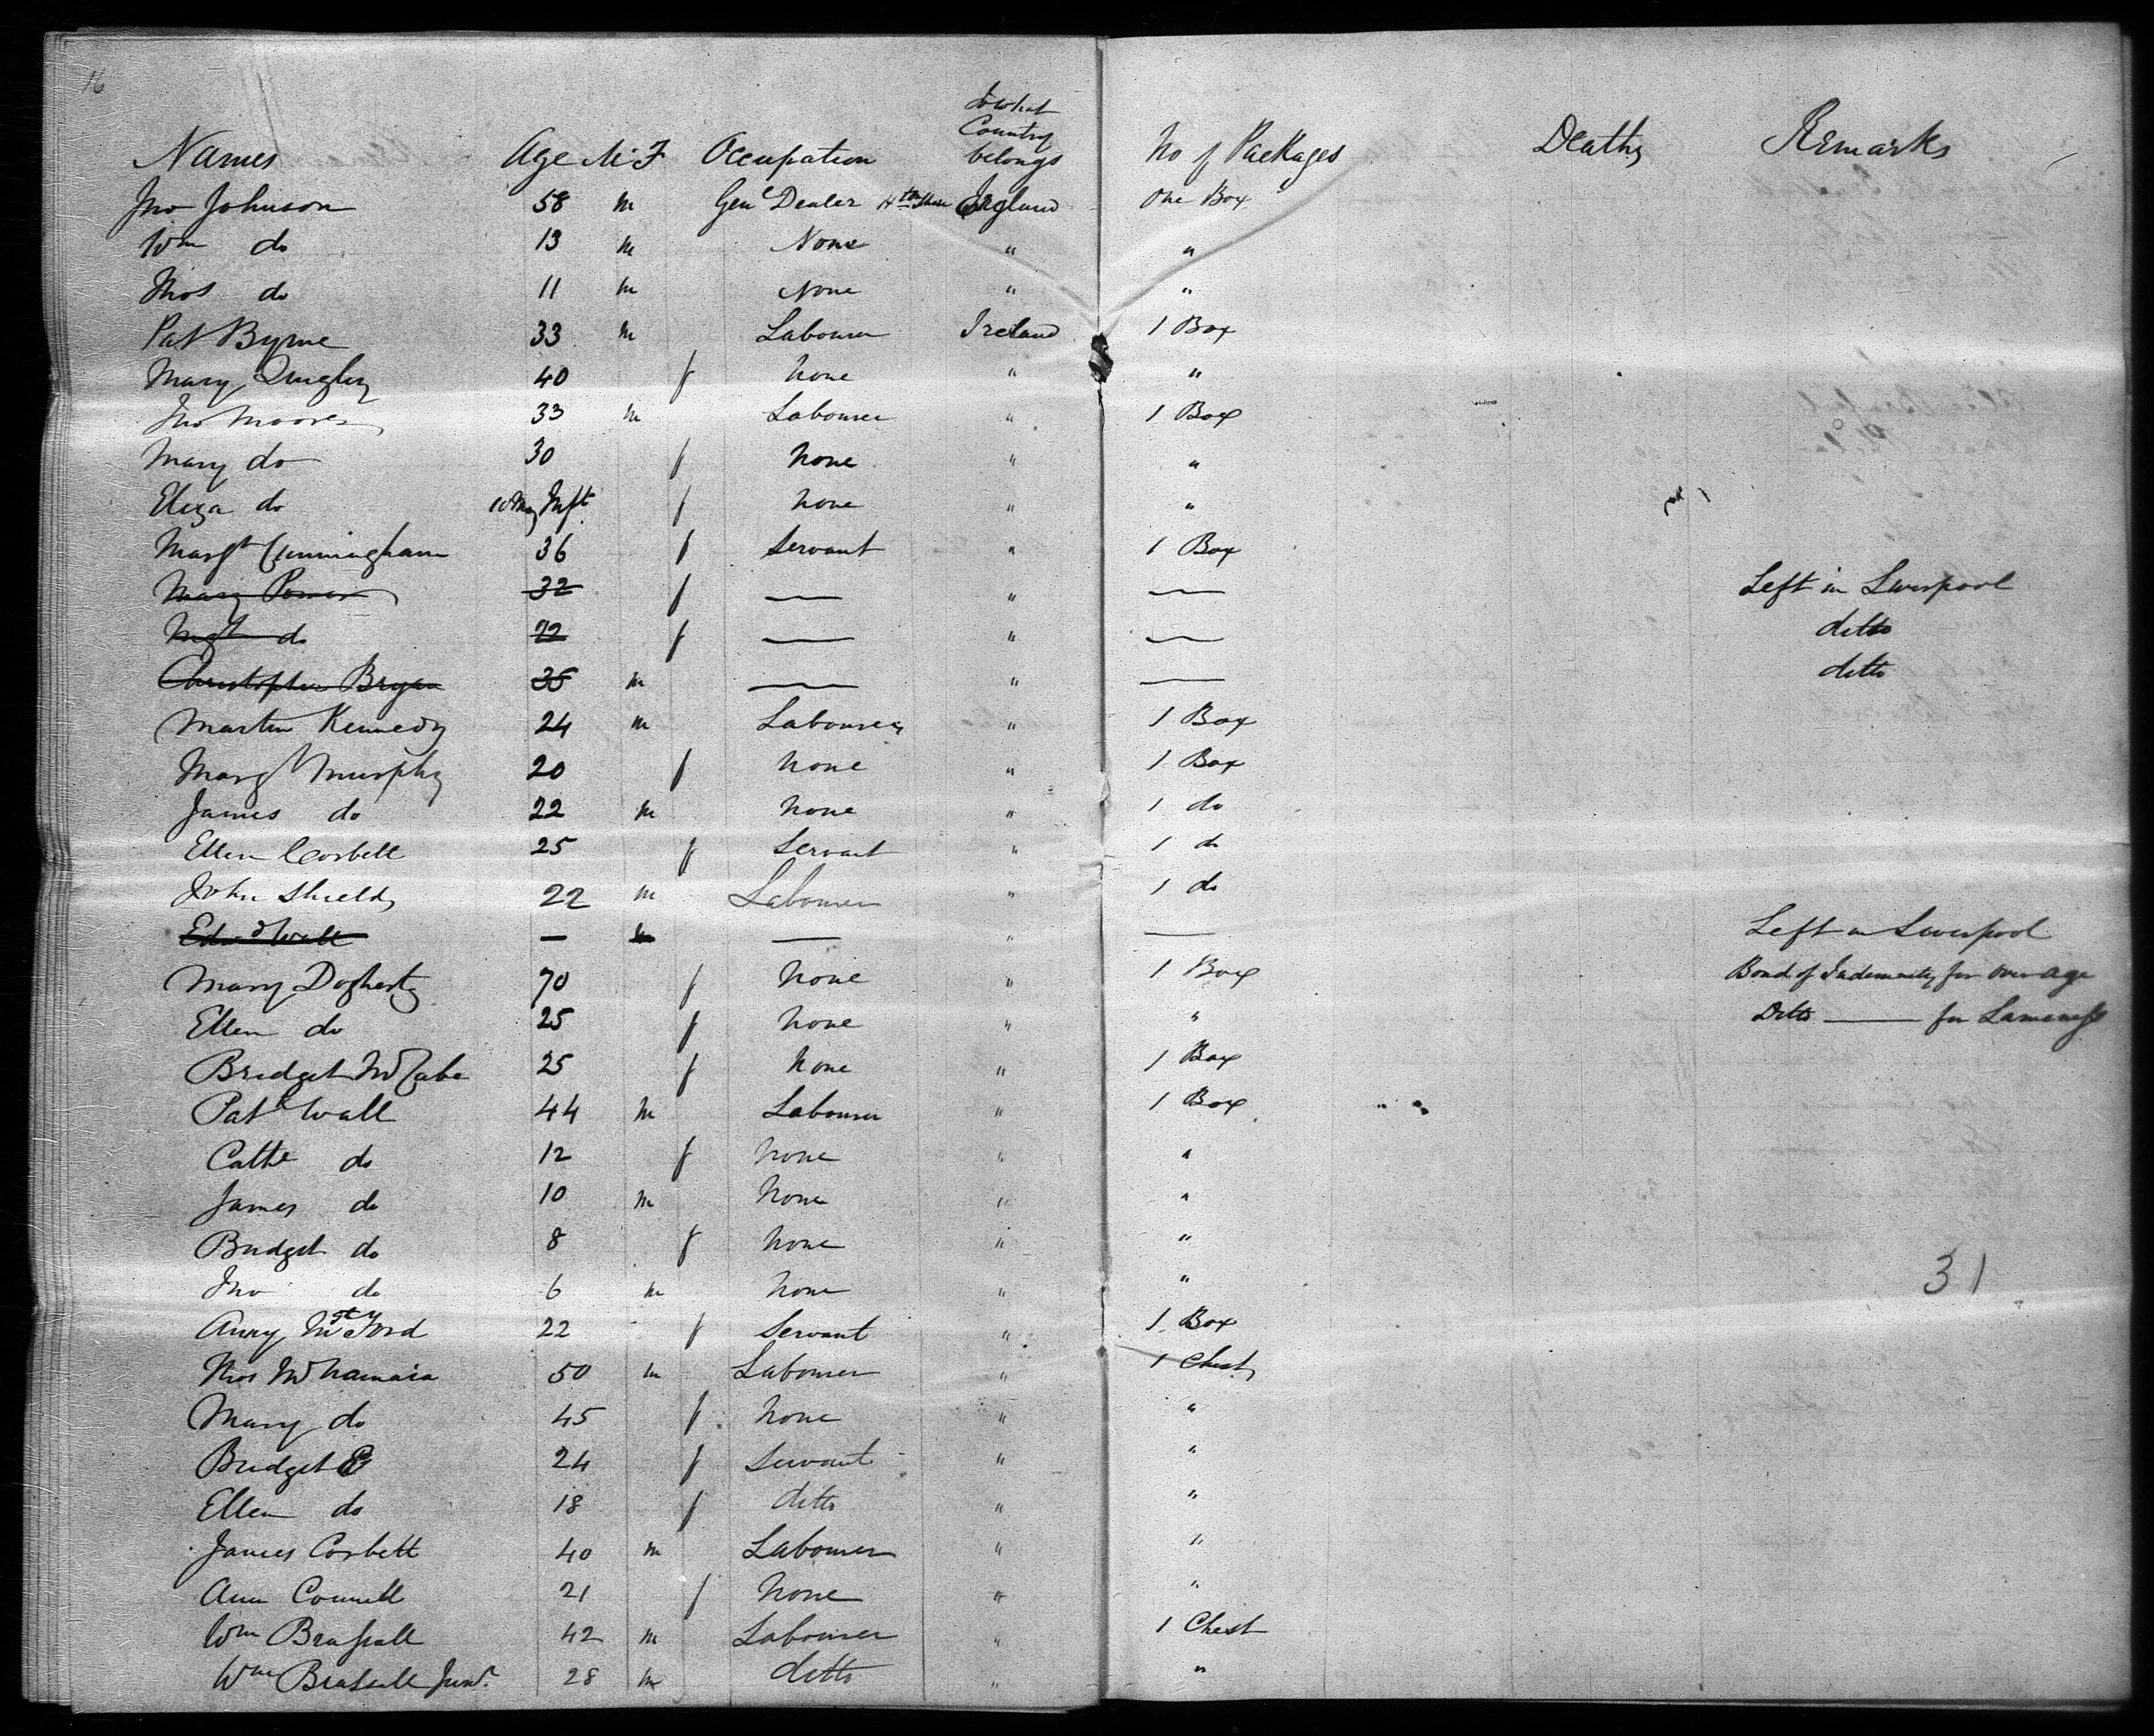 16
To what
Country
Names Age M F Occupation belongs No of Packages Deaths Remarks
Jno Johnson 58 m Genl Dealer England One Box
Wm do 13 m None " "
Thos do 11 m None " "
Pat Byrne 33 m Labourer Ireland 1 Box
Mary Quigley 40 f None " "
Jno Moore 33 m Labourer " 1 Box
Mary do 30 f None " "
Eliza do Inft f None " "
Margt Cunningham 36 f Servant " 1 Box
Mary Power 32 f — " — Left in Liverpool
Mgt do f — " — ditto
Christopher Bryan 35 m — " — ditto
Martin Kennedy 24 m Labourer " 1 Box
Margt Murphy 20 f None " 1 Box
James do 22 m None " 1 do
Ellen Corbett 25 f Servant " 1 do
John Shields 22 m Labourer " 1 do
Edwd Wall — m — " — Left in Liverpool
Mary Dogherty 70 f None " 1 Box Bond of Indemnity for over age
Ellen do 25 f None " " Ditto — for Lameness
Bridget McCabe 25 f None " 1 Box
Patk Wall 44 m Labourer " 1 Box
Cathe do 12 f None " "
James do 10 m None " "
Bridget do 8 f None " "
Jno do 6 m None " "
31
Anny 22 f Servant " 1 Box
Thos McNamara 50 m Labourer " 1 Chest
Mary do 45 f None " "
Bridget 24 f Servant " "
Ellen do 18 f ditto " "
James Corbett 40 m Labourer " "
Ann Connell 21 f None " "
Wm Brassall 42 m Labourer " 1 Chest
Wm Brassall Junr. 28 m ditto " "